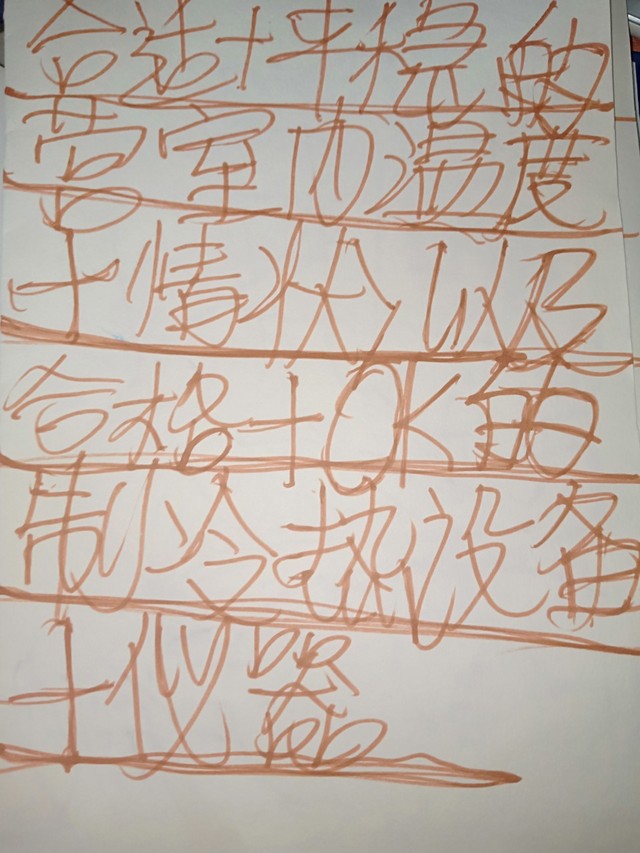 合适+平稳的
营室内温度
+情状以及
合格+OK的
制冷热设备
+仪器